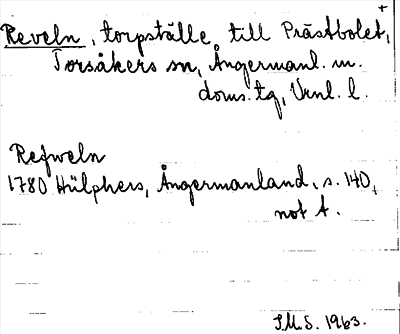 +
Reveln, torpställe till Prästbolet,
Torsåkers sn, Ångermanl. m.
doms. tg, Vrnl. l.
Refweln
1780 Hülphers, Ångermanland, s. 140,
not t.
I.M.S. 1963.